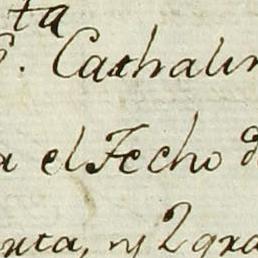 ta
. Cathalin
a el Fecho d
rta, y 2 gra